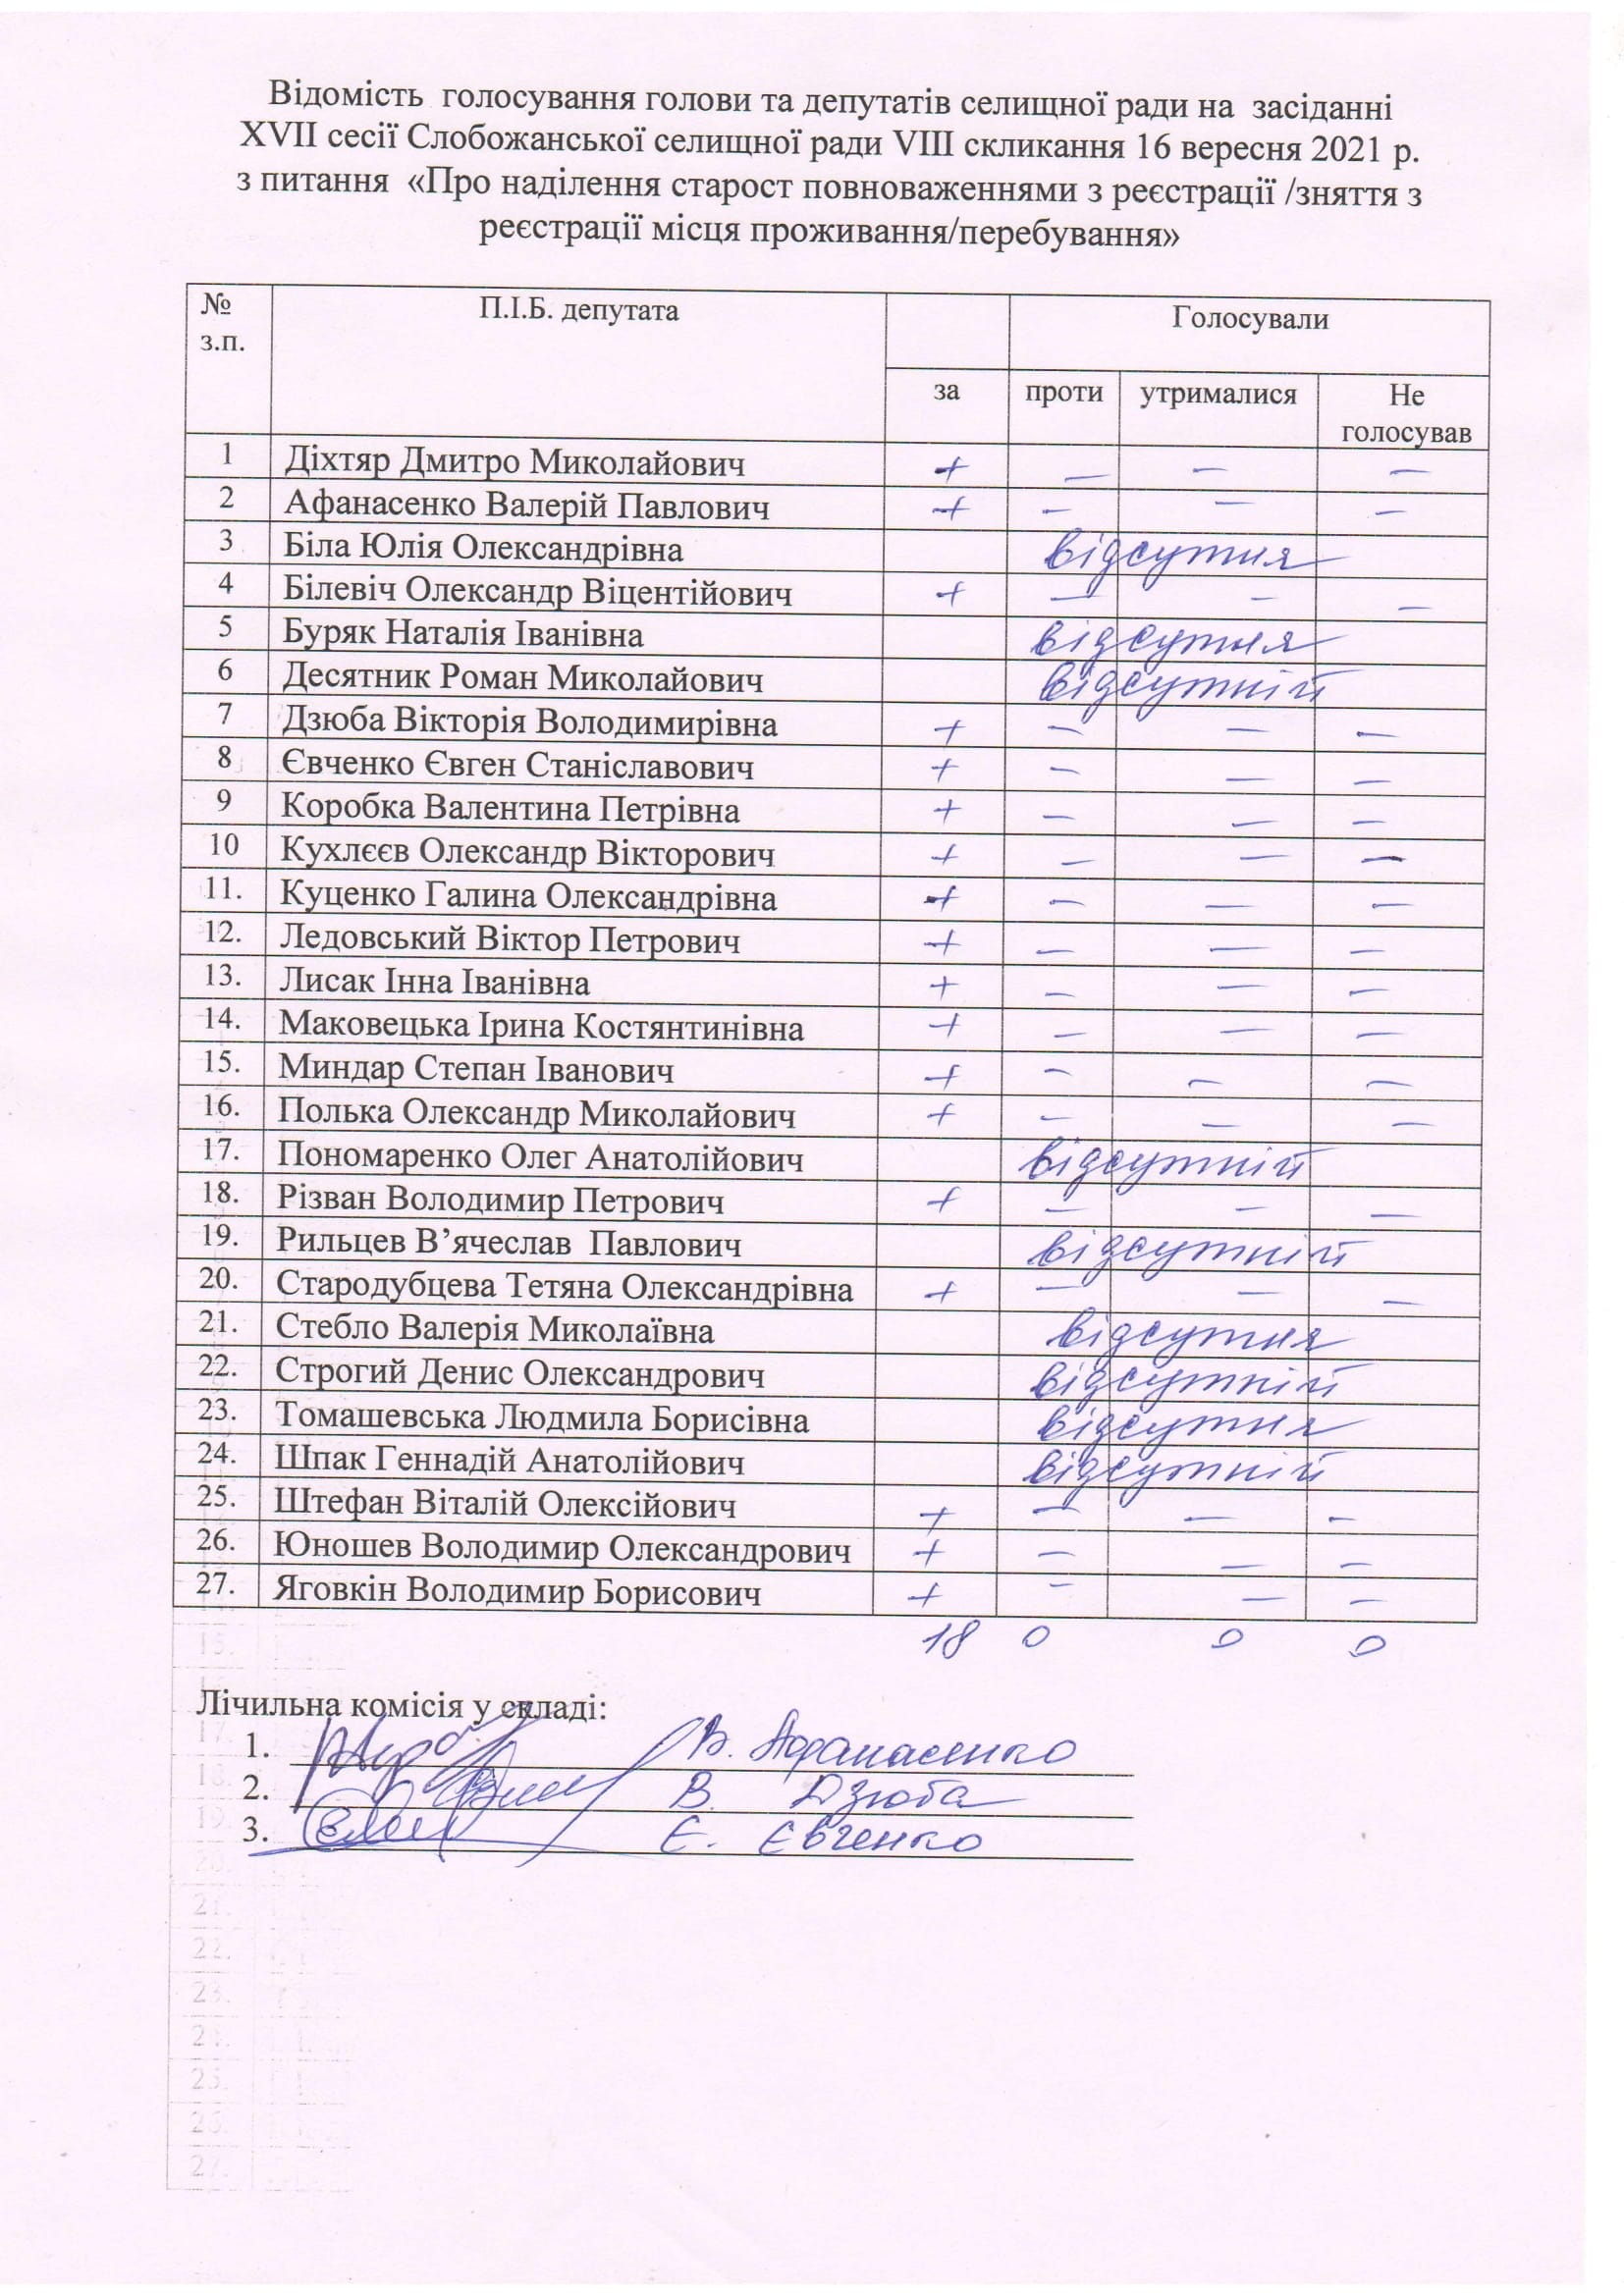 Відомість голосування голови та депутатів селищної ради на засіданні
XVII сесії Слобожанської селищної ради VIII скликання 16 вересня 2021 р.
з питання «Про наділення старост повноваженнями з реєстрації /зняття з
реєстрації місця проживання/перебування»
№ з.п. П.І.Б. депутата Голосували
за проти утрималися Не голосував
1 Діхтяр Дмитро Миколайович + — — —
2 Афанасенко Валерій Павлович + — — —
3 Біла Юлія Олександрівна відсутня
4 Білевіч Олександр Віцентійович + — — —
5 Буряк Наталія Іванівна відсутня
6 Десятник Роман Миколайович відсутній
7 Дзюба Вікторія Володимирівна + — — —
8 Євченко Євген Станіславович + — — —
9 Коробка Валентина Петрівна + — — —
10 Кухлєєв Олександр Вікторович + — — —
11. Куценко Галина Олександрівна + — — —
12. Ледовський Віктор Петрович + — — —
13. Лисак Інна Іванівна + — — —
14. Маковецька Ірина Костянтинівна + — — —
15. Миндар Степан Іванович + — — —
16. Полька Олександр Миколайович + — — —
17. Пономаренко Олег Анатолійович відсутній
18. Різван Володимир Петрович + — — —
19. Рильцев В’ячеслав Павлович відсутній
20. Стародубцева Тетяна Олександрівна + — — —
21. Стебло Валерія Миколаївна відсутня
22. Строгий Денис Олександрович відсутній
23. Томашевська Людмила Борисівна відсутня
24. Шпак Геннадій Анатолійович відсутній
25. Штефан Віталій Олексійович + — — —
26. Юношев Володимир Олександрович + — — —
27. Яговкін Володимир Борисович + — — —
18 0 0 0
Лічильна комісія у складі:
1. В. Афанасенко
2. В. Дзюба
3. Є. Євченко